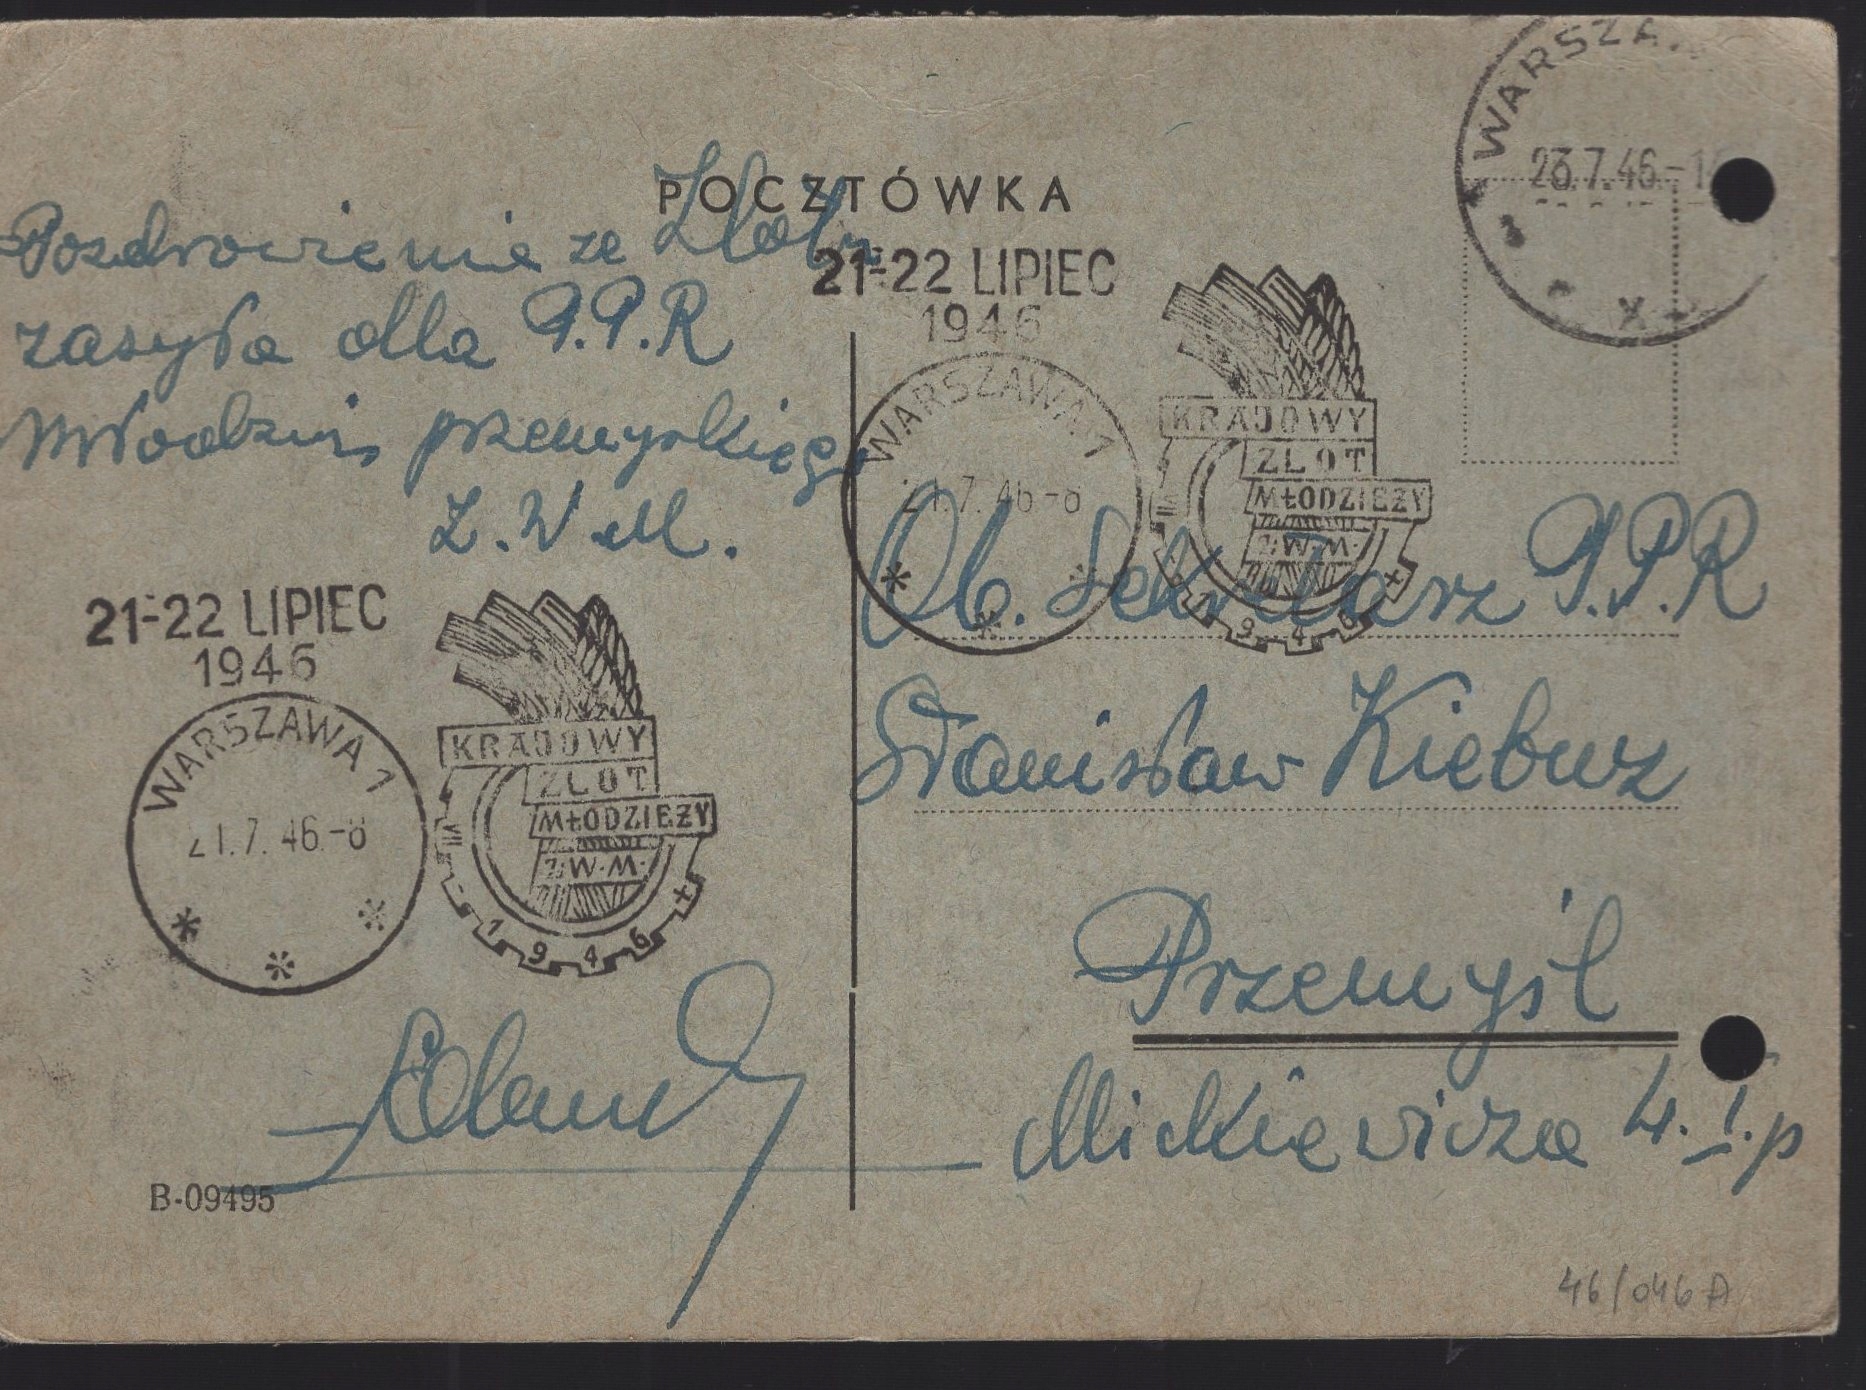 POCZTÓWKA
Pozdrowienie ze Zlotu
zasyła dla P.P.R
przemyskiego
Z.W.M.
21-22 LIPIEC
1946
WARSZAWA 1
21.7.46.-8
KRAJOWY
ZLOT
MŁODZIEŻY
Z.W.M.
1946
21-22 LIPIEC
1946
WARSZAWA 1
21.7.46-8
KRAJOWY
ZLOT
MŁODZIEŻY
Z.W.M.
1946
23.7.46.-1
Ob. Sekretarz P.P.R
Stanisław
Przemyśl
Mickiewicza 4. I.p
B-09495
46/046A